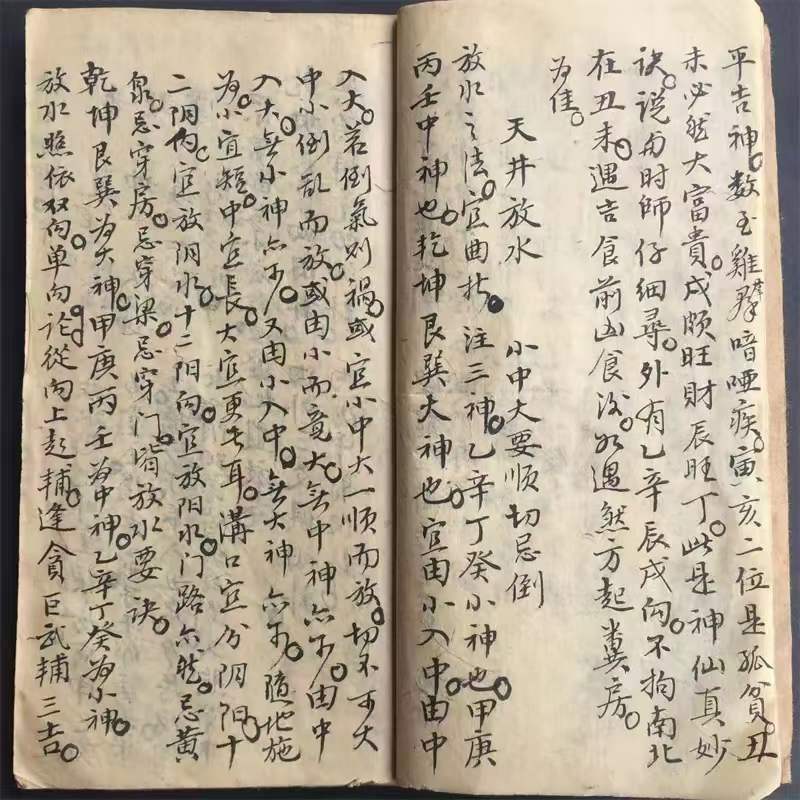 平吉神。数至雞群喑啞疾。寅亥二位是孤貧。丑
未必然大富貴。戌頗旺財辰旺丁。此是神仙真妙
訣。说与时師仔细尋。外有乙辛辰戌向。不拘南北
在丑未。遇吉食前凶食後。如遇煞方起糞房。
为佳。
天井放水 小中大要順切忌倒
放水之法。宜曲折。注三神。乙辛丁癸小神也。甲庚
丙壬中神也。乾坤艮巽大神也。宜由小入中。由中
入大。若倒氣则禍。或宜小中大一順而放。切不可大
中小倒乱而放。或由小而竟大。無中神亦可。由中
入大。無小神亦可。又由小入中。無大神亦可。随地施
为。小宜短。中宜長。大宜更長耳。溝口宜分阴阳。十
二阴向。宜放阴水。十二阳向。宜放阳水。门路亦然。忌黄
泉。忌穿房。忌穿梁。忌穿门。皆放水要訣。
乾坤艮巽为大神。甲庚丙壬为中神。乙辛丁癸为小神。
放水照依双向。单向论。從向上起輔。逢貪巨武輔三吉。